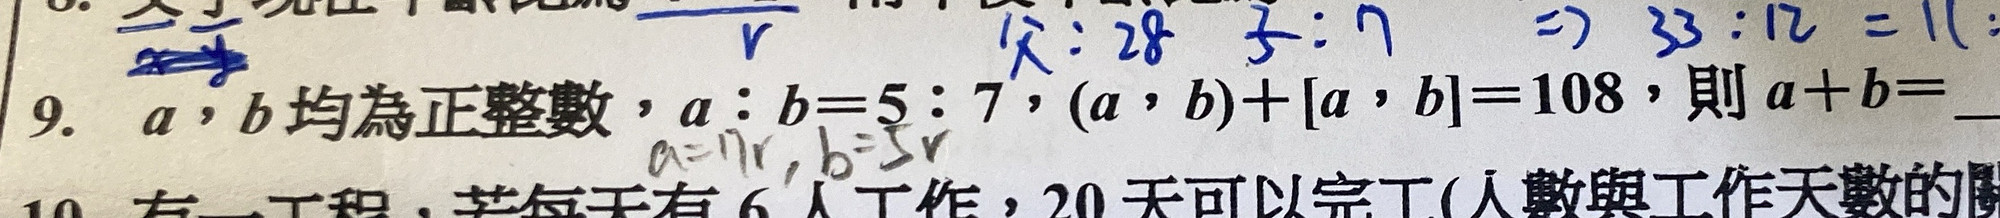 r 父:28 子:7 ⇒ 33:12 = 11:
9. a,b均為正整數,a:b=5:7,(a,b)+[a,b]=108,則a+b=
a=7r, b=5r
10. 有一工程,若每天有6人工作,20天可以完工(人數與工作天數的關